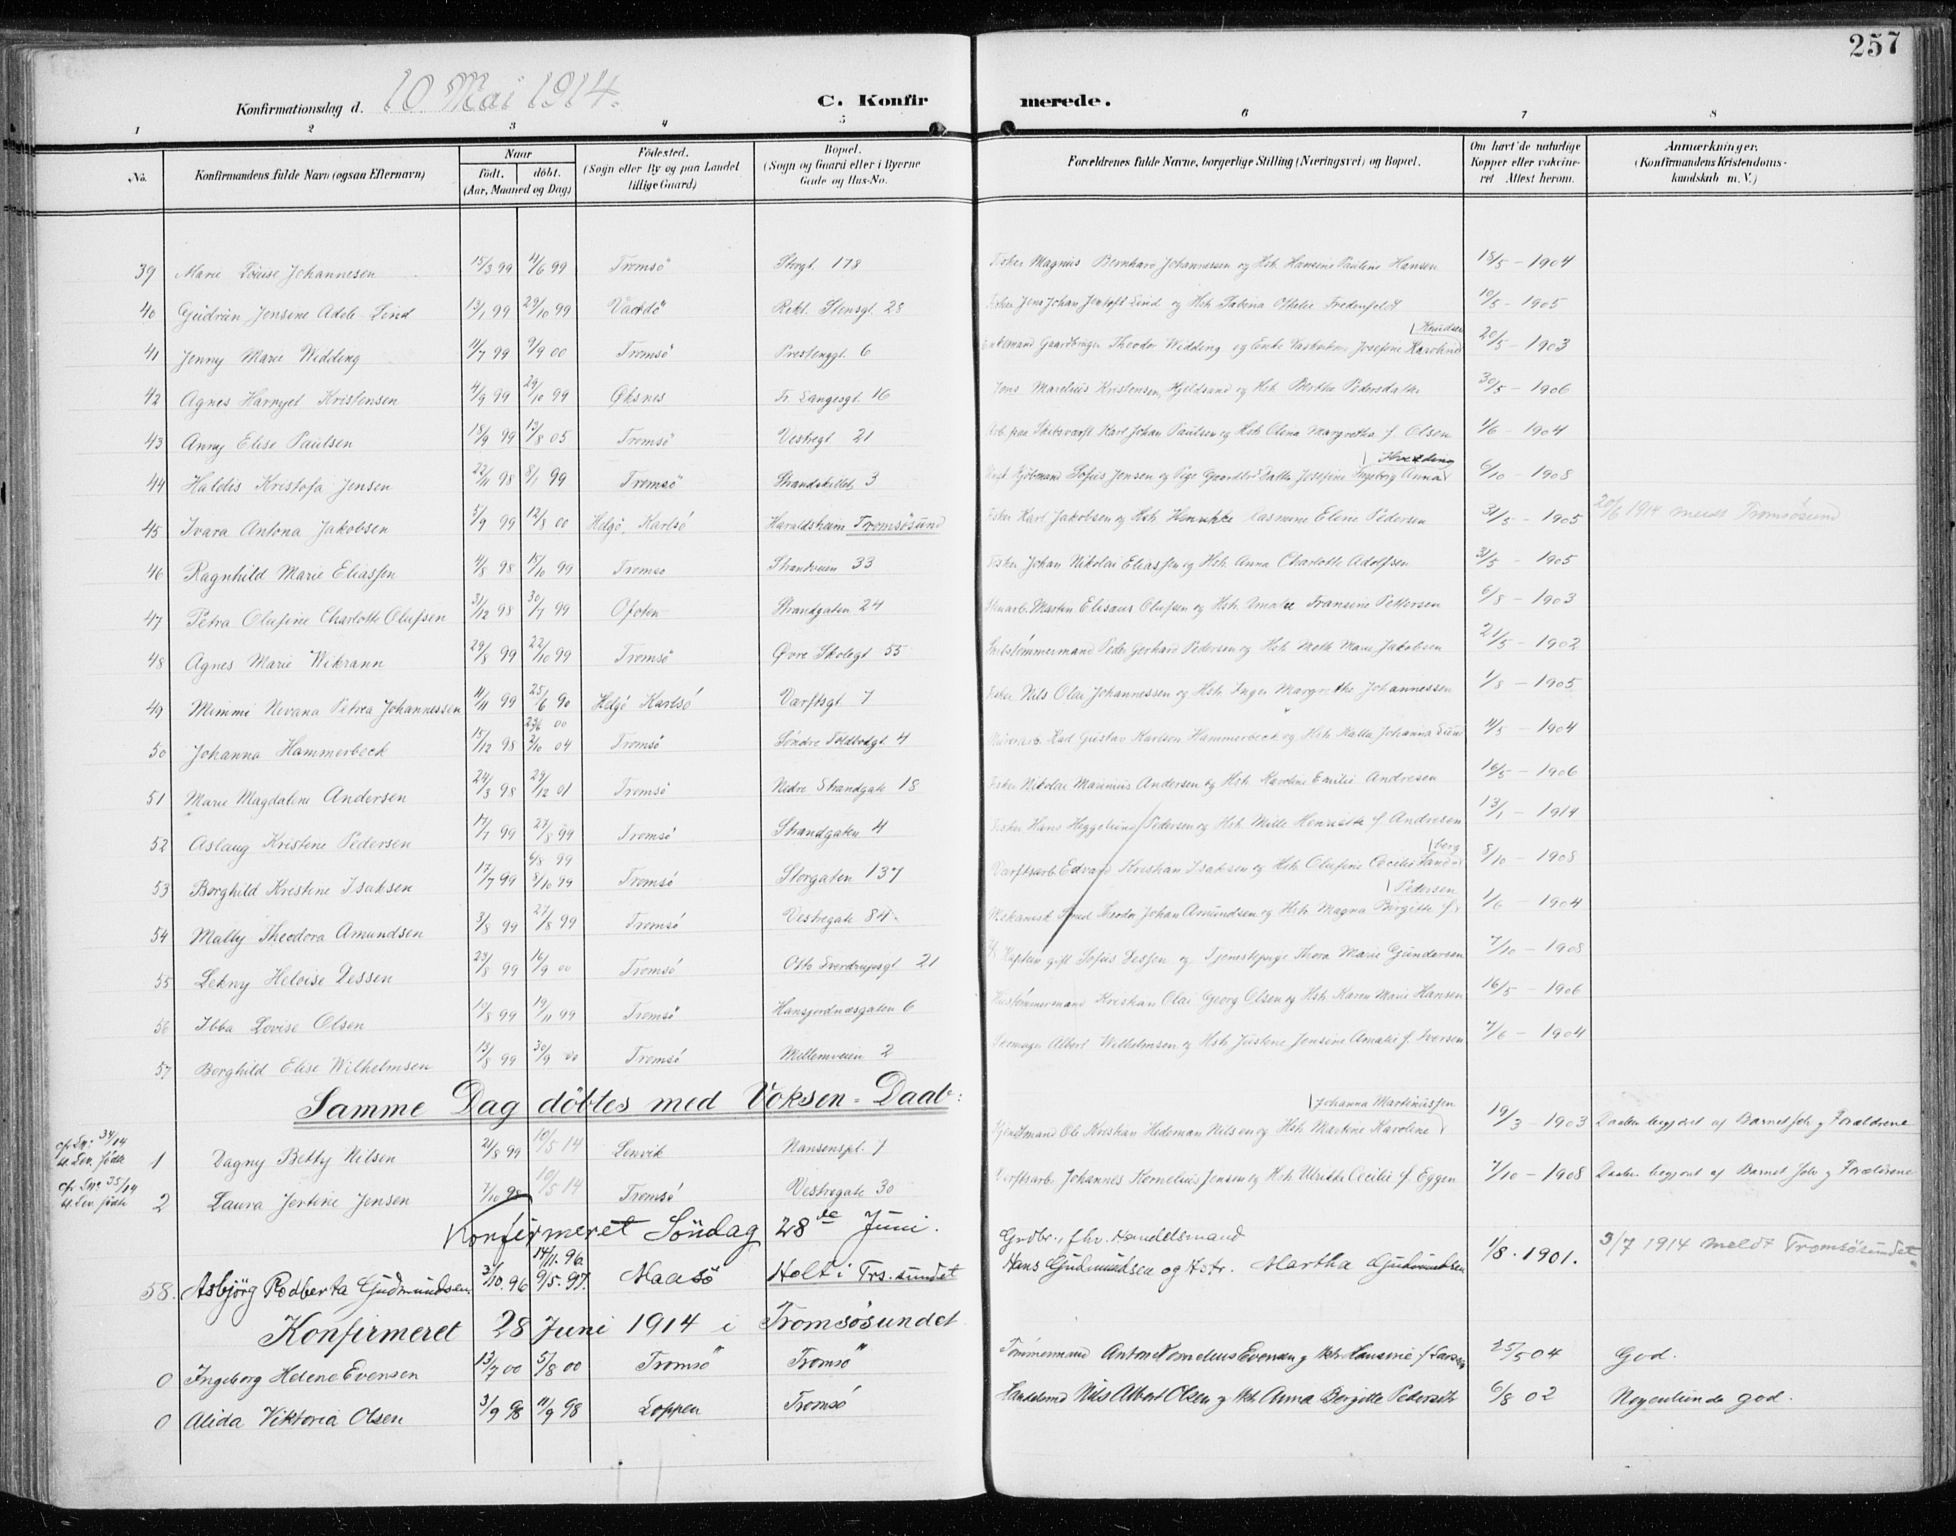 257
Konfirmationsdag d. 10 Mai 1914.
C. Konfirmerede.
1 2 3 4 5 6 7 8
No. Konfirmandens fulde Navn (ogsaa Efternavn) Naar født. døbt. (Aar, Maaned og Dag) Fødested. (Sogn eller By og paa Landet tillige Gaard) Bopæl. (Sogn og Gaard eller i Byerne Gade og Hus-No. Forældrenes fulde Navne, borgerlige Stilling (Næringsvei) og Bopæl. Om havt de naturlige Kopper eller vakcineret Attest herom. Anmærkninger. (Konfirmandens Kristendomskundskab m. V.)
39 Marie Lovise Johannesen 15/3 99 4/6 99 Tromsö Storgt. 178 Fisker Magnus Bernhard Johannessen og Hst. Hansine Pauline Hansen 18/5 - 1904
40 Gudrun Jensine Adele Lind 13/1 99 29/10 99 Vardö Rekt. Stensgt. 28 Fisker Jens Johan Jentoft Lind og Hst. Othelie 10/5 - 1905
41 Jenny Marie Widding 11/7 99 9/9 00 Tromsö Prestenggt. 6 Theodor Widding og Enke Josefine Karoline Knudsen 20/5 - 1903
42 Agnes Harryet Kristensen 4/9 99 29/10 99 Øksnes Fr. Langesgt. 16 Jens Marelius Kristensen, Hjeldsand og Hst. Bertha Pedersdatter 30/5 - 1906
43 Anny Elise Paulsen 18/9 99 13/8 05 Tromsö Vestregt 21 Arb. paa Skibsværft Karl Johan Paulsen og Hst. Olena Margretha f. Olsen 1/6 - 1904
44 Haldis Kristofa Jensen 22/11 98 8/1 99 Tromsö Strandskillet 3 Sofus Jensen og Pige Josefine Ingeborg Anna 6/10 - 1908
45 Ivara Antona Jakobsen 5/9 99 12/8 00 Helgö, Karlsö Haraldsheim Tromsösund Fisker Karl Jakobsen og Hst. Rasmine Eline Pedersen 31/5 - 1905 20/6 1914 meldt Tromsösund
46 Ragnhild Marie Eliassen 4/8 98 15/10 99 Tromsö Strandveien 33 Fisker Johan Nikolai Eliassen og Hst. Anna Charlotte Adolfsen 31/5 - 1905
47 Petra Olufine Charlotte Olufsen 31/12 98 30/7 99 Ofoten Strandgaten 24 Martin Elisæus Olufsen og Hst. Amalie Fransine Pettersen 6/8 - 1903
48 Agnes Marie Wikrann 29/8 99 22/10 99 Tromsö Øvre Skolegt 55 Skibstømmermand Peder Gerhard Pedersen og Hst. Meth Marie Jakobsen 21/5 - 1902
49 Mimmi Nevana Petrea Johannessen 11/11 99 25/6 90 Helgö Karlsö Værftsgt 7 Fisker Nils Olai Johannessen og Hst. Inger Margrethe Johannessen 1/8 - 1905
50 Johanna Hammerbeck 15/12 98 23/6 00 2/10 04 Tromsö Søndre Toldbodgt. 4 Karl Gustav Karlsen Hammerbeck og Hst. Kalla Johanna Lund 4/5 - 1904
51 Marie Magdalene Andersen 24/3 98 29/12 01 Tromsö Nedre Strandgate 18 Fisker Nikolai Marinius Andersen og Hst. Karoline Emilie Andresen 16/5 - 1906
52 Aslaug Kristine Pedersen 17/1 99 27/8 99 Tromsö Strandgaten 4 Fisker Hans Heggelund Pedersen og Hst. Mille Henriette f. Andresen 13/1 - 1914
53 Borghild Kristine Isaksen 17/7 99 6/8 99 8/10 99 Tromsö Storgaten 137 Værftsarb. Edvard Kristian Isaksen og Hst. Olufine Cecilie Sandberg 8/10 - 1908
54 Malby Theodora Amundsen 3/8 99 27/8 99 Tromsö Vestregate 84 Mekanisk Smed Theodor Johan Amundsen og Hst. Magna Birgitte f. Pedersen 1/6 - 1904
55 Lekny Heloise Dessen 23/8 99 16/9 00 Tromsö Otto Sverdrupsgt 21 Kaptein gift Sofus Dessen og Tjenestepige Thora Marie Gundersen 7/10 - 1908
56 Ibba Lovise Olsen 17/8 99 19/11 99 Tromsö Hansjordnæsgaten 6 Hustømmermand Kristian Olai Georg Olsen og Hst. Karen Marie Hansen 16/5 - 1906
57 Borghild Elise Wilhelmsen 13/8 99 30/9 00 Tromsö Mellemveien 2 Albert Wilhelmsen og Hst. Justine Jensine Amalie f. Iversen 7/6 - 1904
Samme Dag döbtes med Voksen-Daab:
cfr. 34/14 lev. födte 1 Dagny Betty Nilsen 21/8 99 10/5 14 Lenvik Nansenspl. 7 Ole Kristian Hedeman Nilsen og Hst. Martine Karoline Johanna Martinussen 19/3 - 1903 Daaben begjæret af Barnet selv og Forældrene
cfr. 35/14 lev. födte 2 Laura Jertine Jensen 7/10 98 10/5 14 Tromsö Vestregate 30 Værftsarb. Johannes Kornelius Jensen og Hst. Ulrikke Cecilie f. Eggen 7/10 - 1908 Daaben begjæret af Barnet selv og Forældrene
Konfirmeret Söndag 28de Juni.
58. Asbjörg Rodberta Gudmundsen 3/10. 96 14/11. 96. 9/5. 97. Maasö Holt i Trs. sundet Grdbr., fhv. Handelsmand Hans Gudmundsen og Hstr. Martha Gudmundsen 1/8. 1901. 3/7 1914 meldt Tromsösundet
Konfirmeret 28 Juni 1914 i Tromsösundet
0 Ingeborg Helene Evensen 13/7 00 5/8 00 Tromsö Tromsö Tömmermand Anton Kornelius Evensen og Hst. Hansine f. Larsen 25/5 04 God.
0 Alida Viktoria Olsen 3/9 98 11/9 98 Loppen Tromsö Nils Albert Olsen og Hst. Anna Bergitte Pedersdtr 6/8 02 Nogenlunde god.